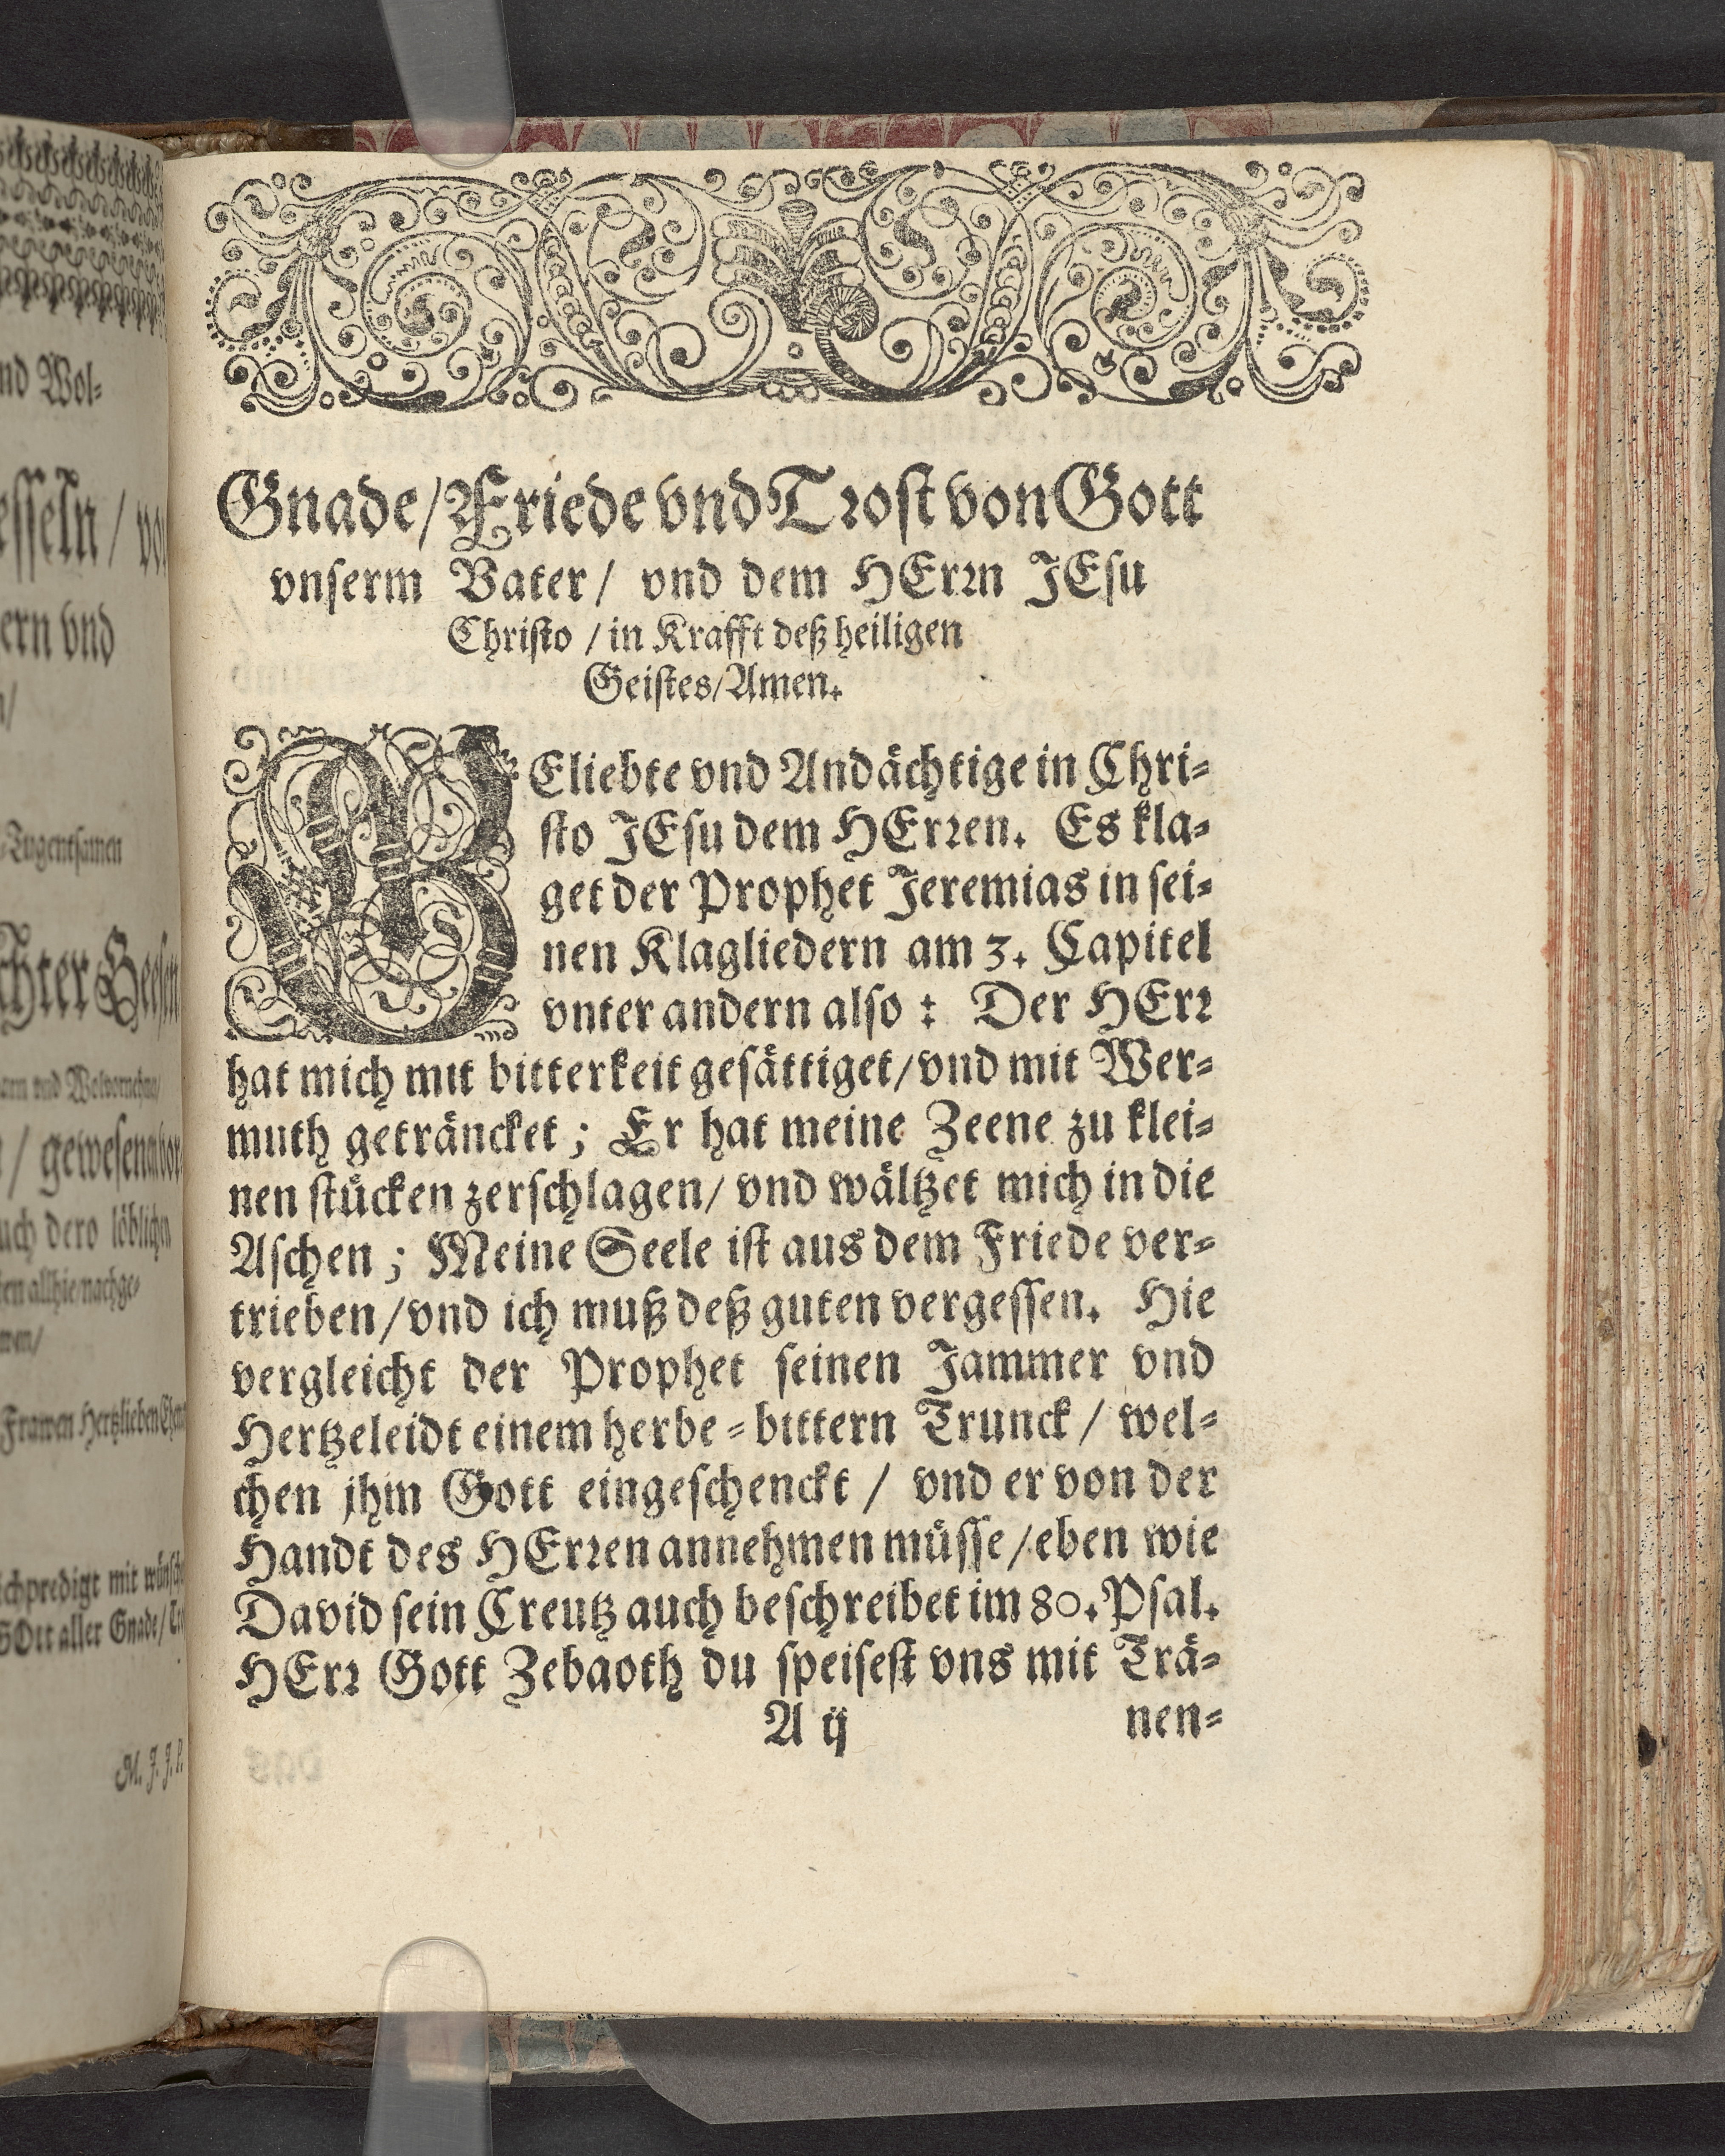 nd Wol⸗
esseln / vo
ern vnd
Tugentsamen
chter
vnd Wolvornehm/
/ gewesen
uch dero löblichen
en allhie nachge⸗
wen/
Frawen Hertzlieben
ichpredigt mit
GOtt aller Gnade/
M. J. J. P.
Gnade/Friede vnd Trost von Gott
vnserm Vater/ vnd dem HErrn JEsu
Christo / in Krafft deß heiligen
Geistes/Amen.
BEliebte vnd Andächtige in Chri⸗
sto JEsu dem HErren. Es kla⸗
get der Prophet Jeremias in sei⸗
nen Klagliedern am 3. Capitel
vnter andern also : Der HErr
hat mich mit bitterkeit gesättiget/vnd mit Wer⸗
muth geträncket ; Er hat meine Zeene zu klei⸗
nen stücken zerschlagen/ vnd wältzet mich in die
Aschen ; Meine Seele ist aus dem Friede ver⸗
trieben/vnd ich muß deß guten vergessen. Hie
vergleicht der Prophet seinen Jammer vnd
Hertzeleidt einem herbe⸗bittern Trunck / wel⸗
chen jhm Gott eingeschenckt / vnd er von der
Handt des HErren annehmen müsse/eben wie
David sein Creutz auch beschreibet im 80. Psal.
HErr Gott Zebaoth du speisest vns mit Trä⸗
A ij nen⸗